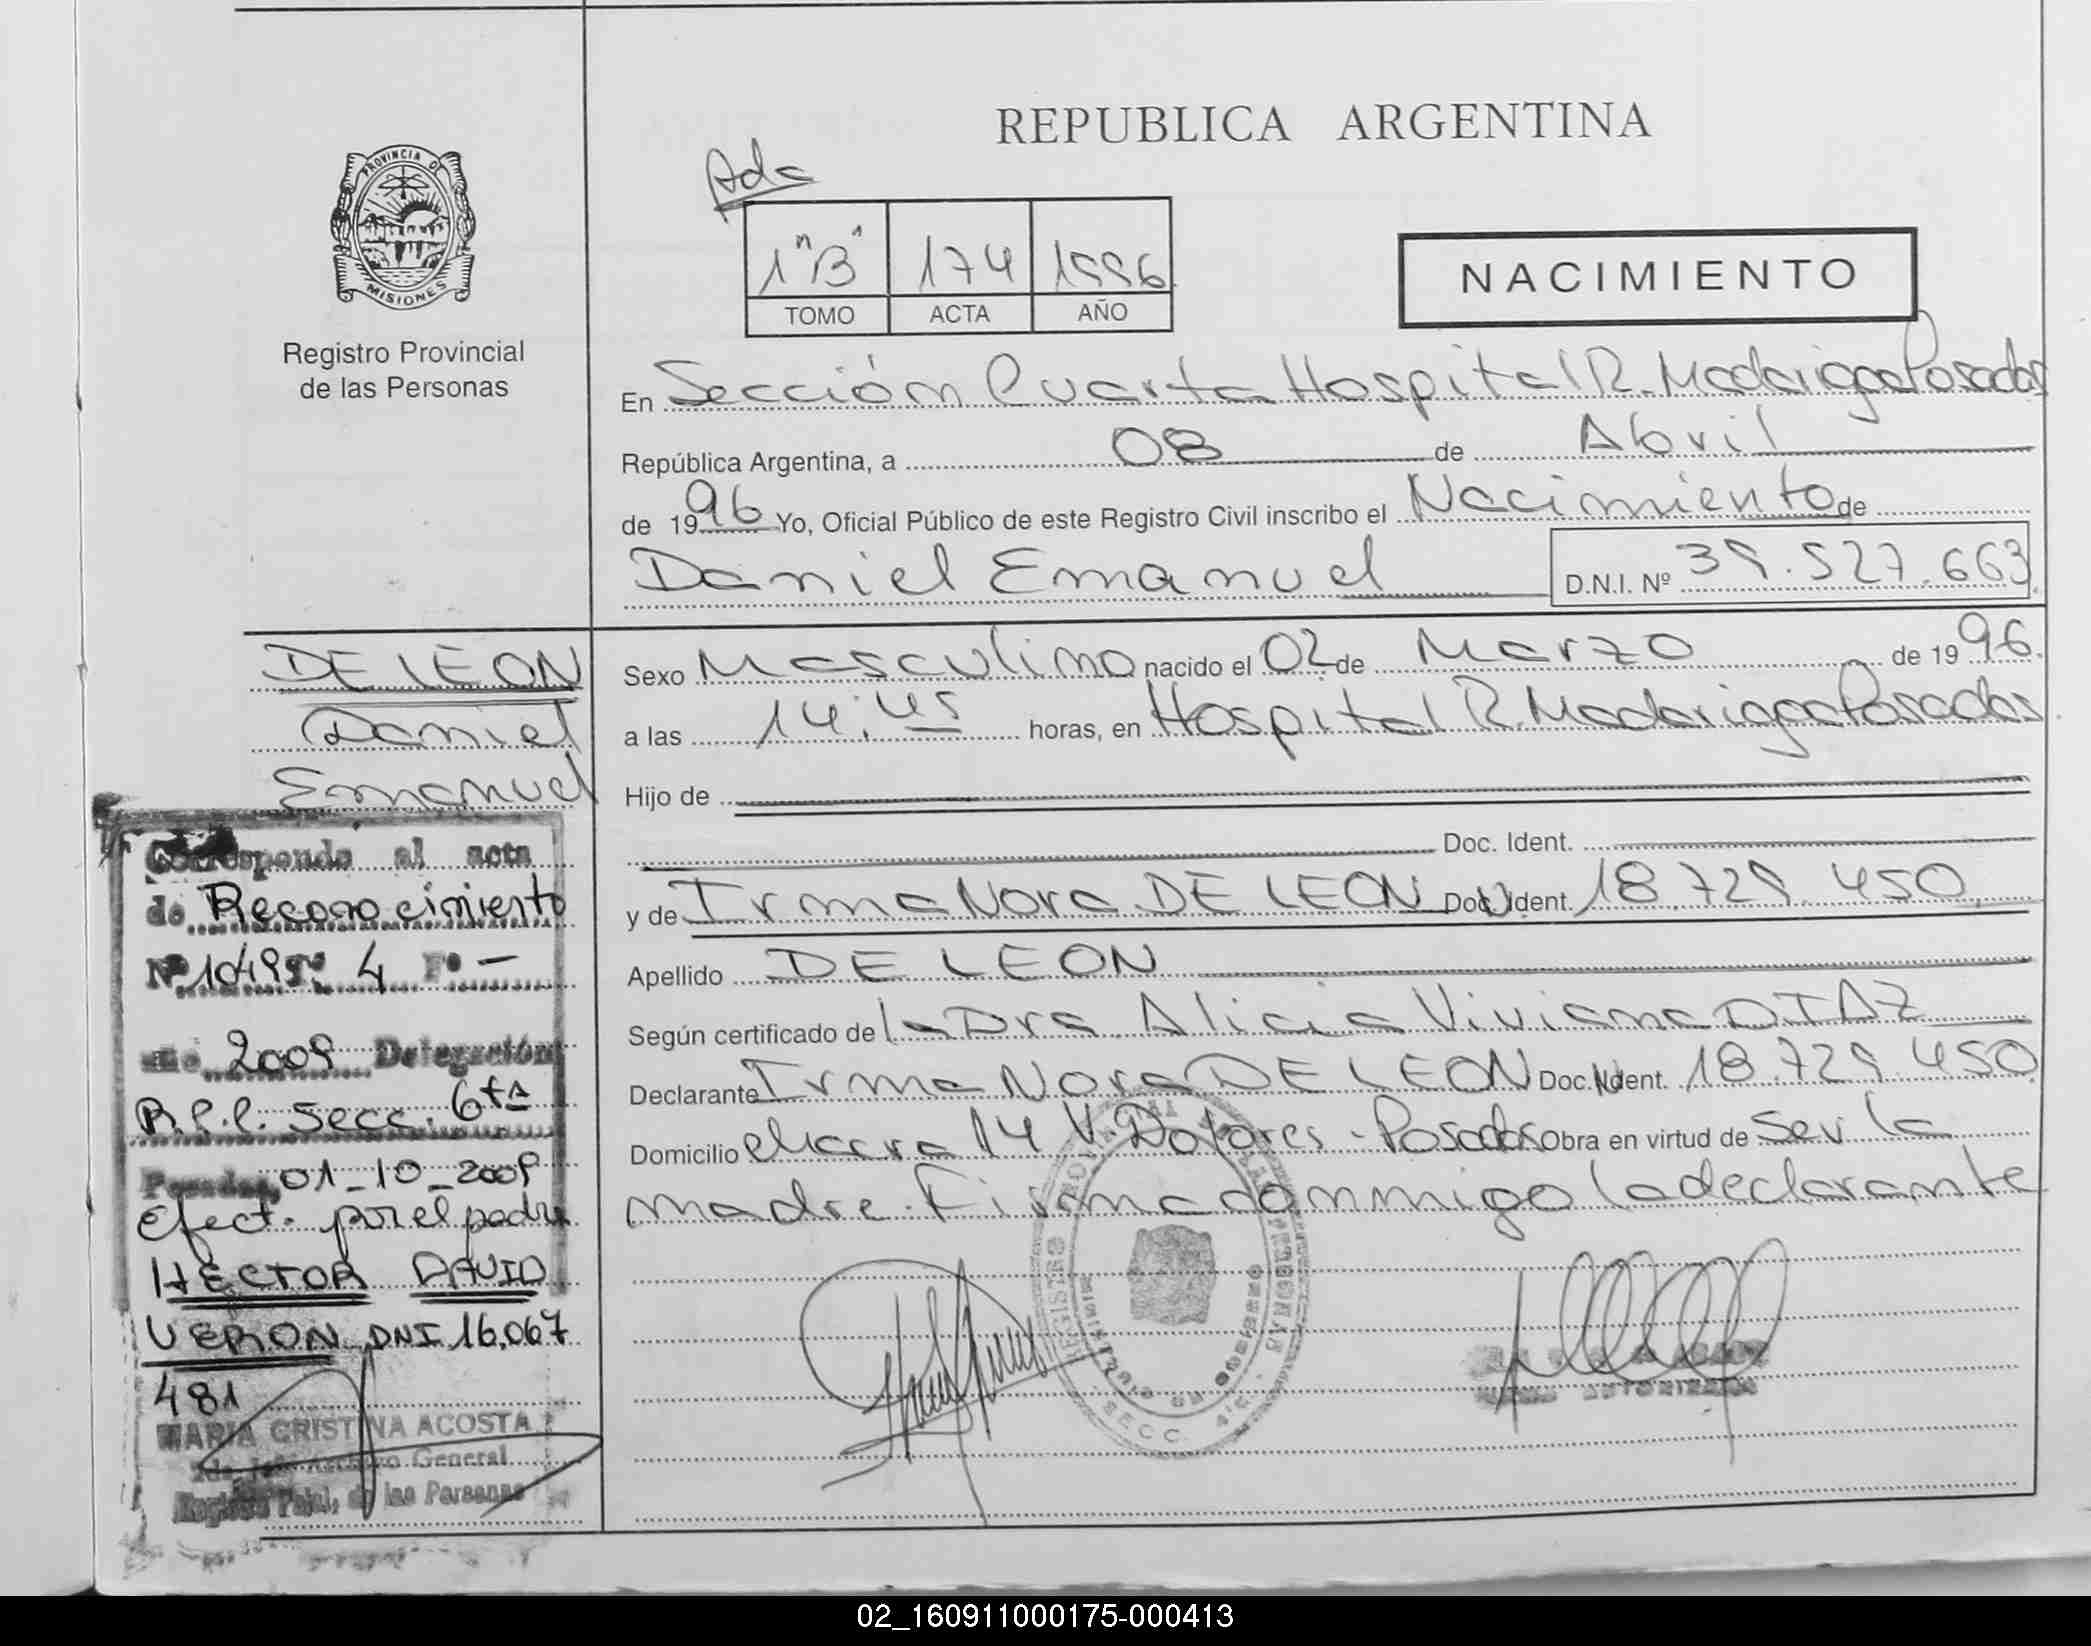 REPUBLICA ARGENTINA
Ada
PROVINCIA DE
MISIONES
Registro Provincial
de las Personas
1 "B" 174 1996
TOMO ACTA AÑO
NACIMIENTO
En Sección Cuarta Hospital R. Madariaga Posadas
República Argentina, a 08 de Abril
de 1996 Yo, Oficial Público de este Registro Civil inscribo el Nacimiento de
Daniel Emanuel D.N.I. Nº 39.527.663
DE LEON
Daniel
Emanuel
Sexo Masculino nacido el 02 de Marzo de 1996.
a las 14:45 horas, en Hospital R. Madariaga Posadas
Hijo de
Doc. Ident.
y de Irma Nora DE LEON Doc. Ident. 18.729.450
Apellido DE LEON
Según certificado de la Dra Alicia Viviana DIAZ
Declarante Irma Nora DE LEON Doc. Ident. 18.729.450
Domicilio chacra 14 V. Dolores - Posadas Obra en virtud de Ser la
madre. Firma conmigo la declarante
Corresponde al acta
de Reconocimiento
Nº 1049 Tº 4 Fº -
año 2009 Delegación
R.P.P. Secc. 6ta
Posadas, 01-10-2009
Efect. por el padre
HECTOR DAVID
VERON DNI 16.067
481
MARIA CRISTINA ACOSTA
Archivo General
Registro Pcial. de las Personas
MINISTERIO DE GOBIERNO
SECC. 4ta.
02_160911000175-000413